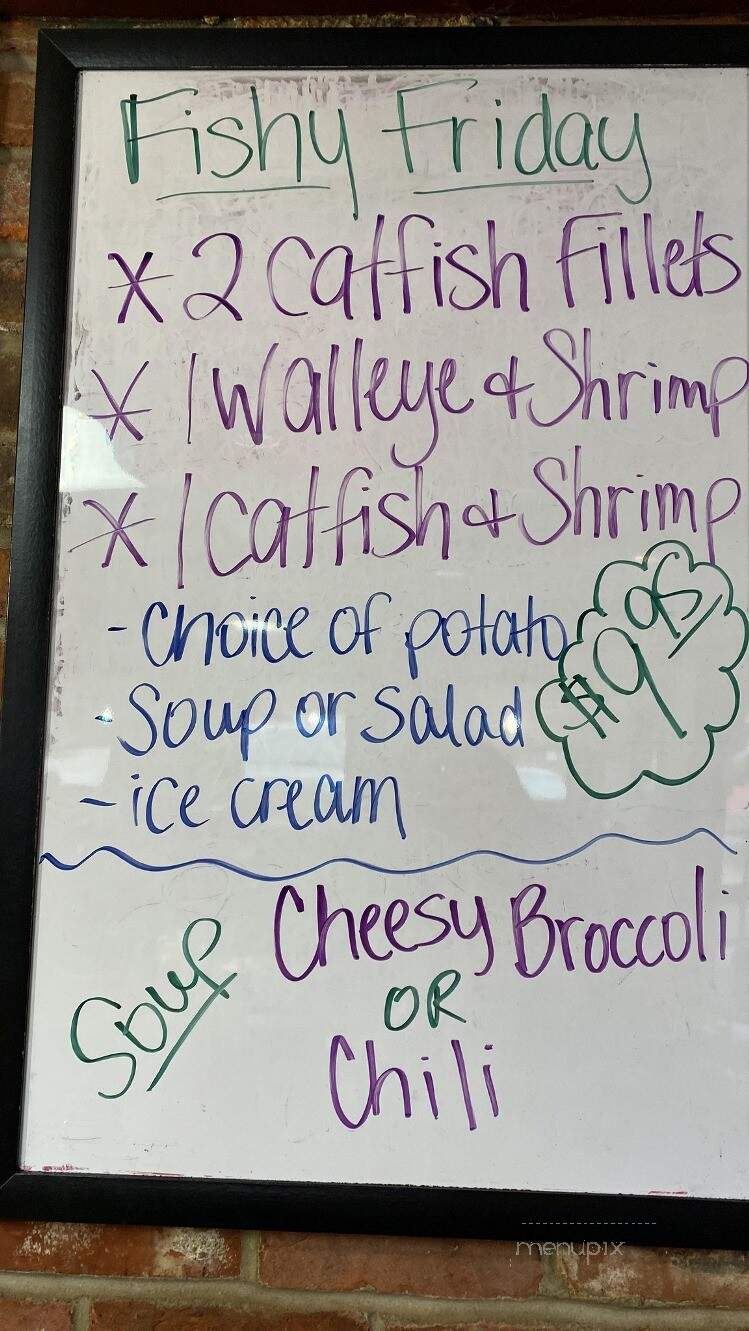 Fishy Friday
* 2 Catfish Fillets
* 1 Walleye & Shrimp
* 1 Catfish & Shrimp
- Choice of potato
- Soup or Salad
- ice cream
$9.95
Soup
Cheesy Broccoli
OR
Chili
menupix